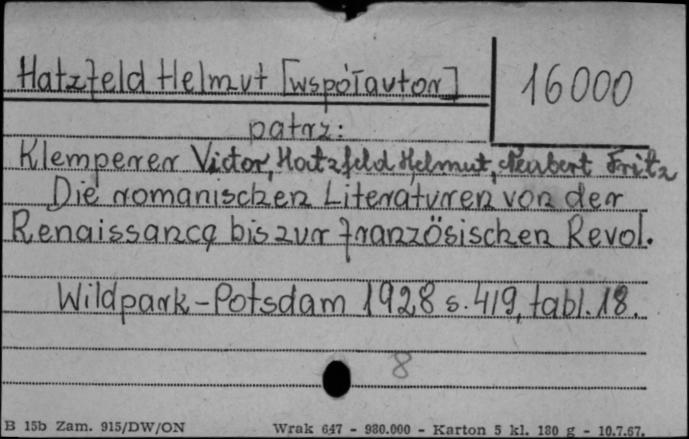 Hatzfeld Helmut [współautor]
16000
patrz:
Klemperer Victor, Hatzfeld Helmut, Neubert Fritz
Die romanischen Literaturen von der
Renaissance bis zur französischen Revol.
Wildpark-Potsdam 1928 s. 419, tabl. 18.
8
B 15b Zam. 915/DW/ON Wrak 647 - 980.000 - Karton 5 kl. 180 g - 10.7.67.